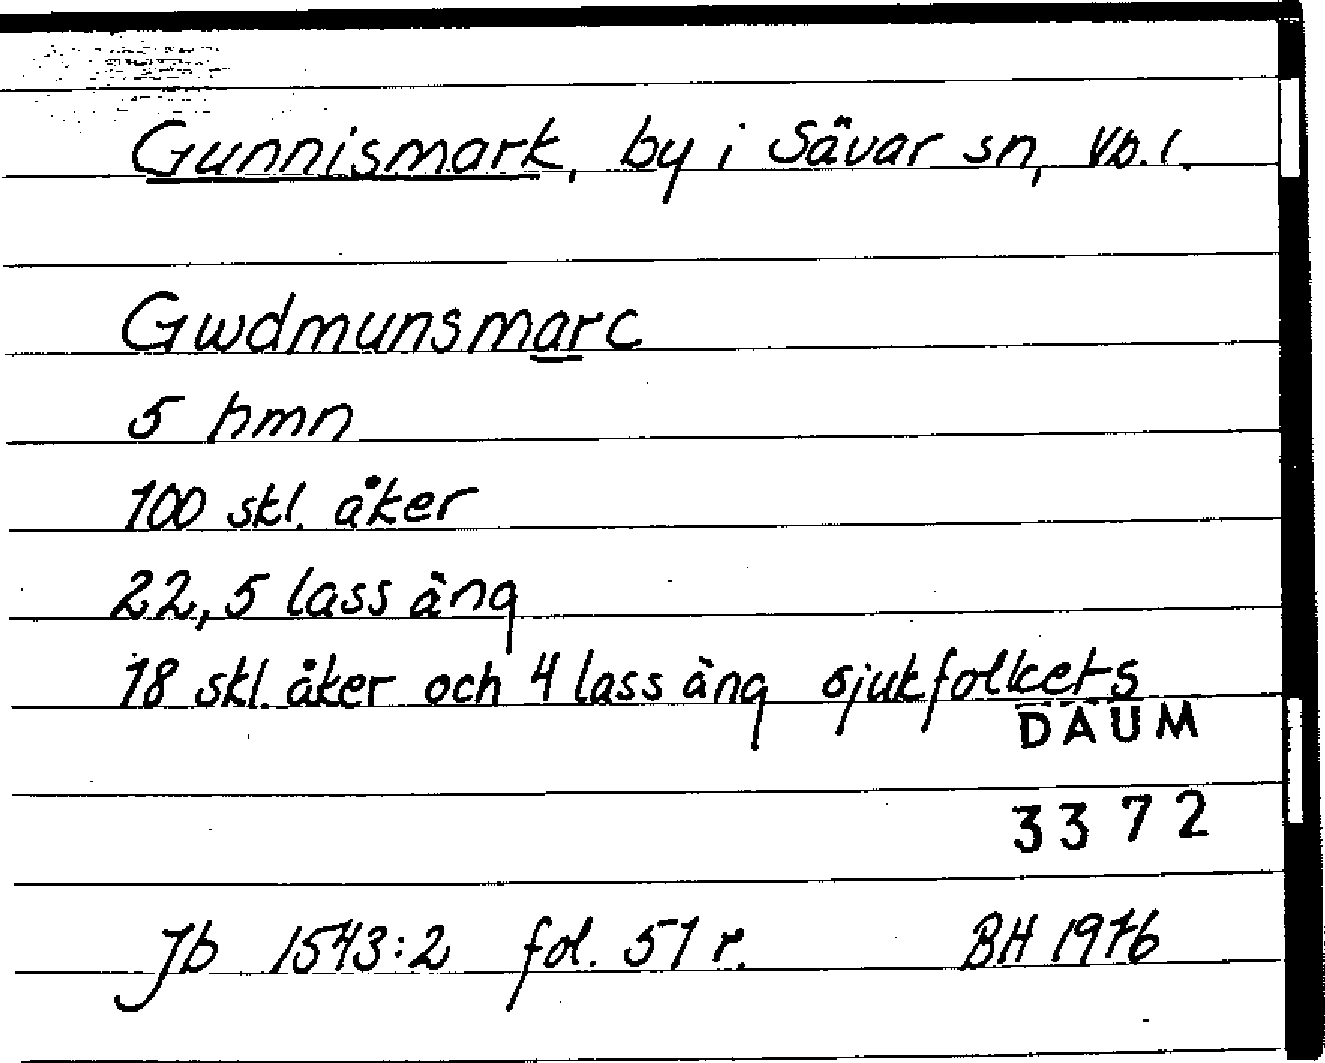 Gunnismark, by i Sävar sn, Vb. l.
Gwdmunsmarc
5 hmn
100 skl. åker
22,5 lass äng
18 skl. åker och 4 lass äng sjukfolkets
DAUM
3372
Jb 1543:2 fol. 51 r. BH 1976